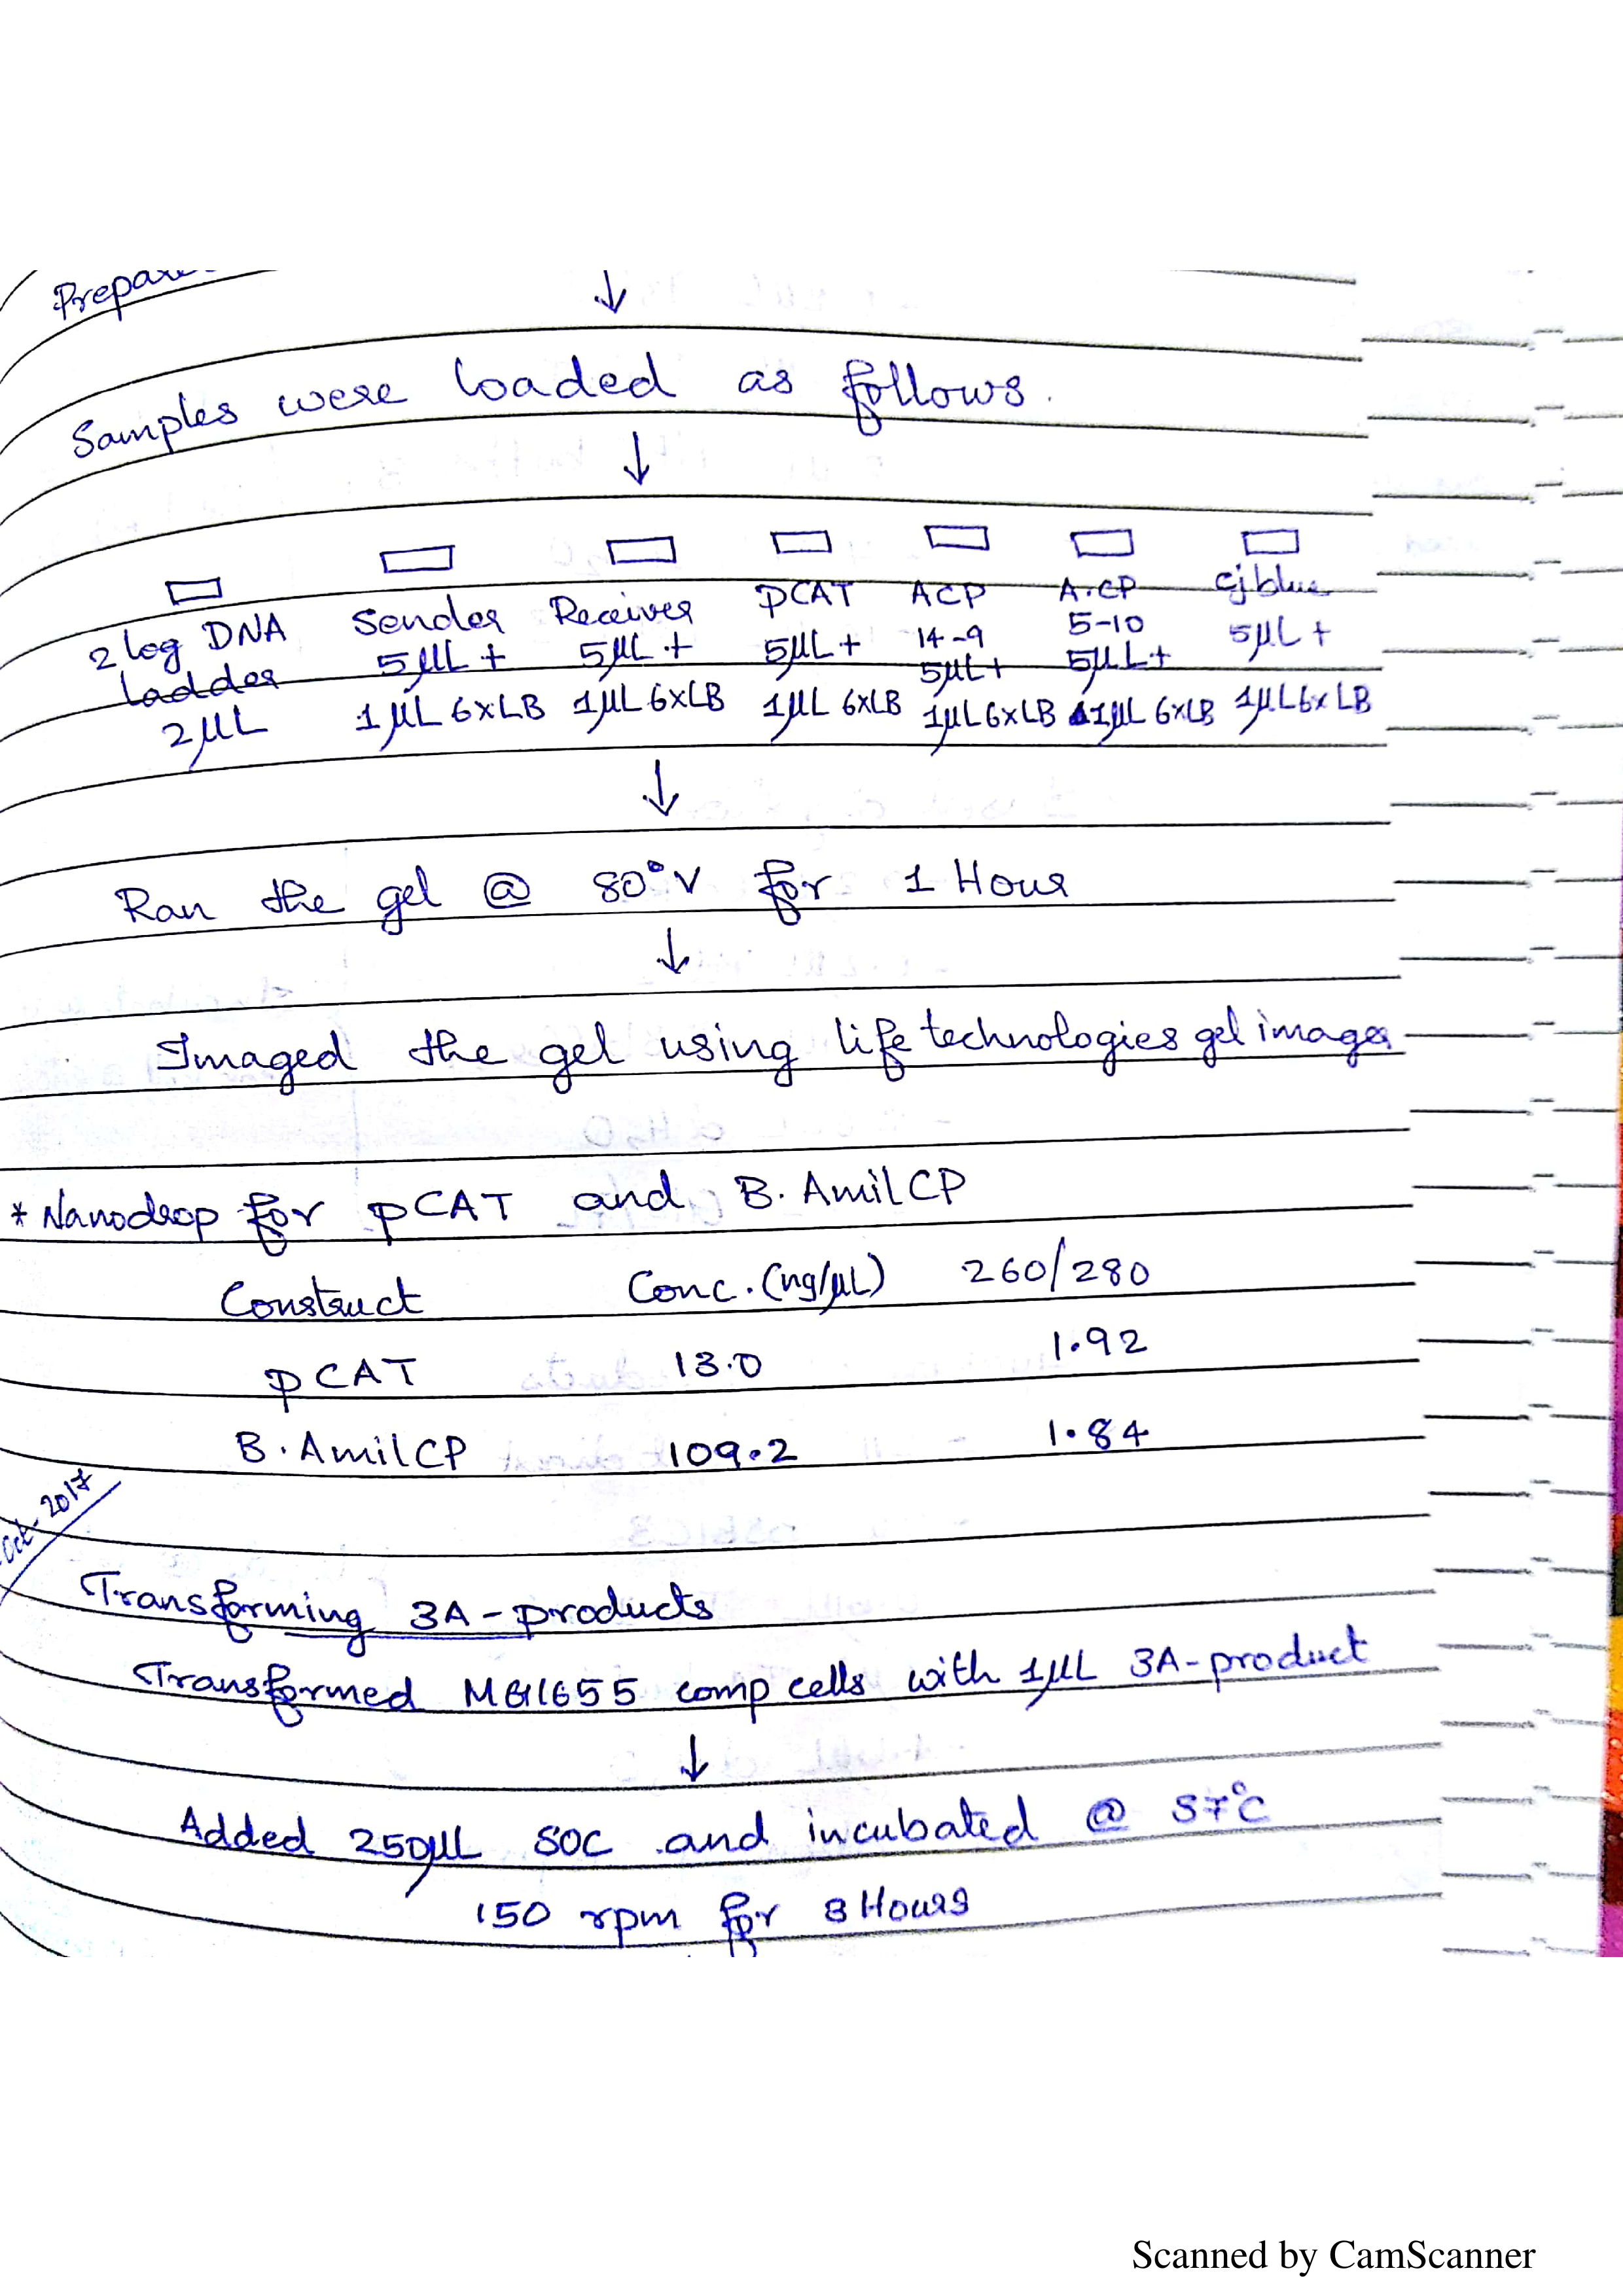 ↓
Samples were loaded as follows.
↓
2 log DNA ladder 2µL
Sender 5µL + 1µL 6xLB
Receiver 5µL + 1µL 6xLB
pCAT 5µL + 1µL 6xLB
ACP 14-9 5µL + 1µL 6xLB
A.CP 5-10 5µL + 1µL 6xLB
cjblue 5µL + 1µL 6x LB
↓
Ran the gel @ 80°V for 1 Hour
↓
Imaged the gel using life technologies gel imager
* Nanodrop for pCAT and B. AmilCP
Construct Conc. (ng/µL) 260/280
pCAT 13.0 1.92
B. AmilCP 109.2 1.84
Oct- 2017
Transforming 3A-products
Transformed MG1655 comp cells with 1µL 3A-product
↓
Added 250µL SOC and incubated @ 37°C
150 rpm for 3 Hours
Scanned by CamScanner